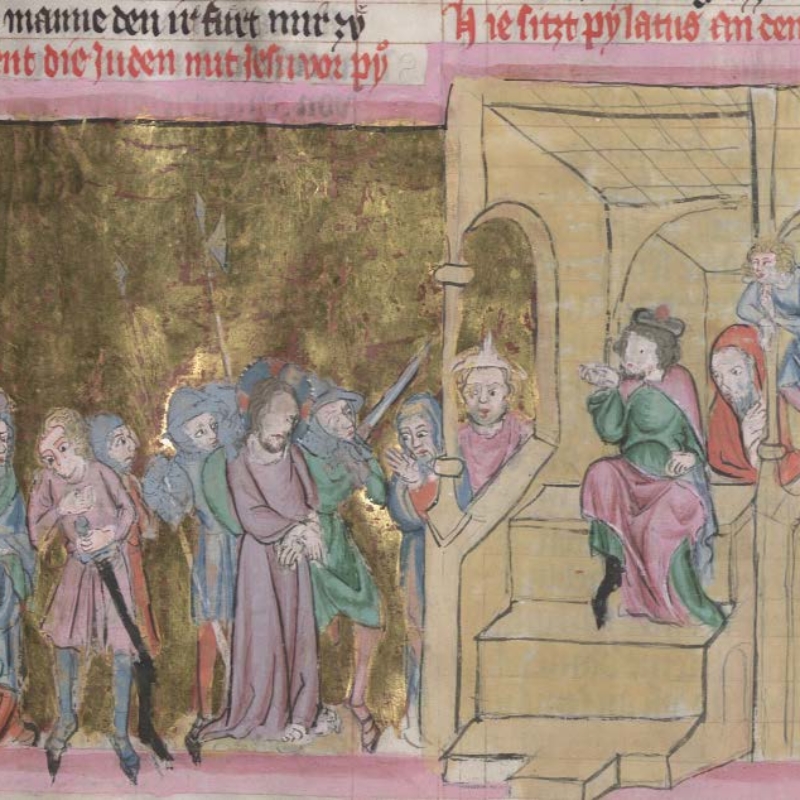 manne den ir furt mir zů
ent die Juden mit Jesu vor py
Hie sitzt pylatus an dem